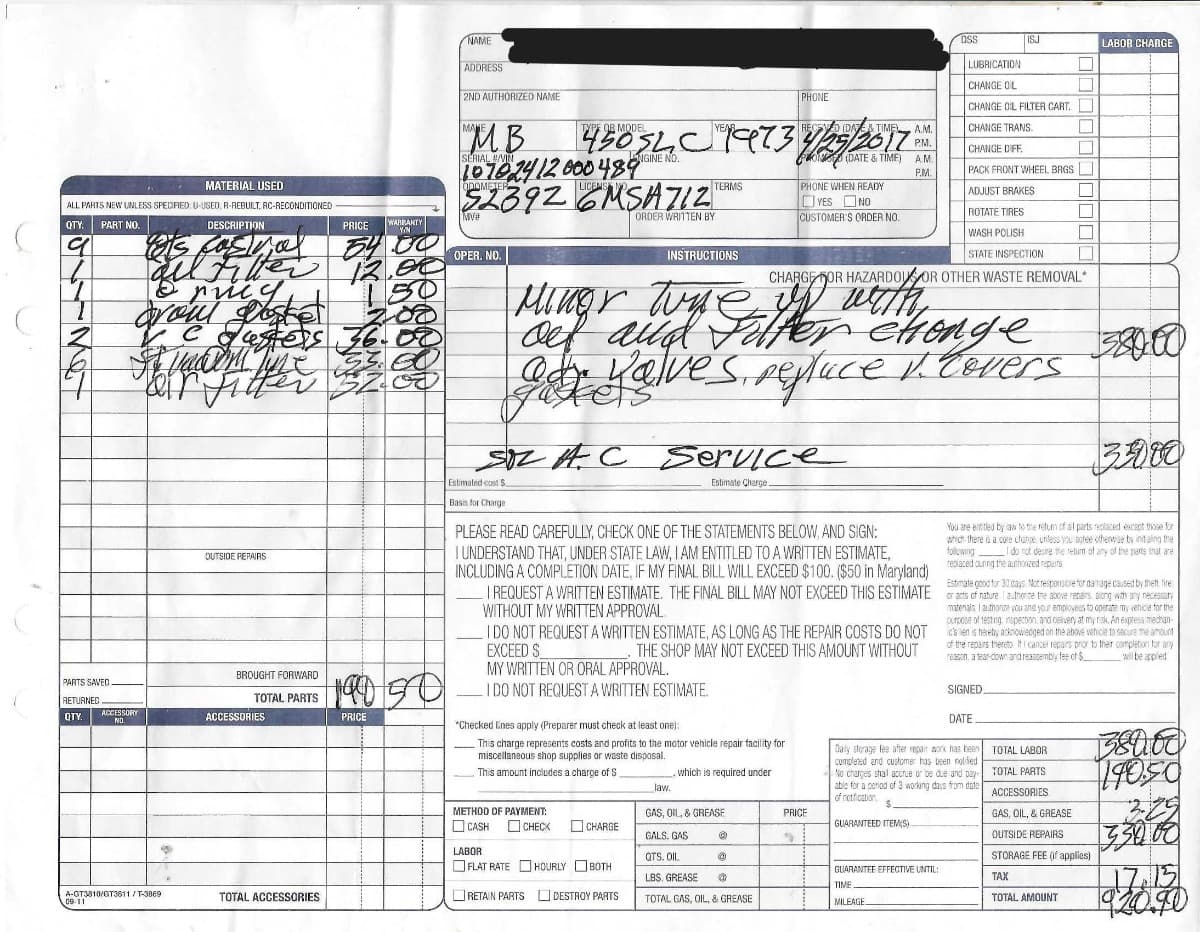 NAME
DSS ISJ LABOR CHARGE
ADDRESS
LUBRICATION
CHANGE OIL
2ND AUTHORIZED NAME PHONE
CHANGE OIL FILTER CART.
MAKE TYPE OR MODEL YEAR RECEIVED (DATE & TIME) A.M. P.M.
MB 450SLC 1973 4/25/2017
CHANGE TRANS.
CHANGE DIFF.
SERIAL #/VIN ENGINE NO. PROMISED (DATE & TIME) A.M. P.M.
10702412000489
PACK FRONT WHEEL BRGS
ODOMETER LICENSE NO. TERMS PHONE WHEN READY
52892 6MSA712 YES NO
ADJUST BRAKES
ROTATE TIRES
MV# ORDER WRITTEN BY CUSTOMER'S ORDER NO.
WASH POLISH
STATE INSPECTION
MATERIAL USED
ALL PARTS NEW UNLESS SPECIFIED: U-USED, R-REBUILT, RC-RECONDITIONED
QTY. PART NO. DESCRIPTION PRICE WARRANTY Y/N
9 qts castrol 54.00
1 oil filter 12.00
1 o ring 1 50
1 drain gasket 2.00
2 V C gaskets 36.00
6 33.00
1 air filter 52.00
OUTSIDE REPAIRS
PARTS SAVED
BROUGHT FORWARD
RETURNED
TOTAL PARTS 190 50
QTY. ACCESSORY NO. ACCESSORIES PRICE
A-GT3810/GT3811 / T-3869
09-11
TOTAL ACCESSORIES
OPER. NO. INSTRUCTIONS
CHARGE FOR HAZARDOUS OR OTHER WASTE REMOVAL*
Minor Tune up with
oil and Filter change 380.00
adj. valves, replace v. covers
gaskets
A.C Service 330.00
Estimated cost $ Estimate Charge
Basis for Charge
PLEASE READ CAREFULLY, CHECK ONE OF THE STATEMENTS BELOW, AND SIGN:
I UNDERSTAND THAT, UNDER STATE LAW, I AM ENTITLED TO A WRITTEN ESTIMATE,
INCLUDING A COMPLETION DATE, IF MY FINAL BILL WILL EXCEED $100. ($50 in Maryland)
I REQUEST A WRITTEN ESTIMATE. THE FINAL BILL MAY NOT EXCEED THIS ESTIMATE
WITHOUT MY WRITTEN APPROVAL.
I DO NOT REQUEST A WRITTEN ESTIMATE, AS LONG AS THE REPAIR COSTS DO NOT
EXCEED $ . THE SHOP MAY NOT EXCEED THIS AMOUNT WITHOUT
MY WRITTEN OR ORAL APPROVAL.
I DO NOT REQUEST A WRITTEN ESTIMATE.
You are entitled by law to the return of all parts replaced except those for
which there is a core charge, unless you agree otherwise by initialing the
following: I do not desire the return of any of the parts that are
replaced during the authorized repairs.
Estimate good for 30 days. Not responsible for damage caused by theft, fire
or acts of nature. I authorize the above repairs, along with any necessary
materials. I authorize you and your employees to operate my vehicle for the
purpose of testing, inspection, and delivery at my risk. An express mechan-
ic's lien is hereby acknowledged on the above vehicle to secure the amount
of the repairs thereto. If I cancel repairs prior to their completion for any
reason, a tear-down and reassembly fee of $ will be applied.
SIGNED
DATE
*Checked lines apply (Preparer must check at least one):
This charge represents costs and profits to the motor vehicle repair facility for
miscellaneous shop supplies or waste disposal.
This amount includes a charge of $ , which is required under
law.
METHOD OF PAYMENT:
CASH CHECK CHARGE
LABOR
FLAT RATE HOURLY BOTH
RETAIN PARTS DESTROY PARTS
GAS, OIL, & GREASE PRICE
GALS. GAS @
QTS. OIL @
LBS. GREASE @
TOTAL GAS, OIL, & GREASE
Daily storage fee after repair work has been
completed and customer has been notified.
No charges shall accrue or be due and pay-
able for a period of 3 working days from date
of notification. $
GUARANTEED ITEM(S)
GUARANTEE EFFECTIVE UNTIL:
TIME
MILEAGE
TOTAL LABOR 380.00
TOTAL PARTS 190.50
ACCESSORIES
GAS, OIL, & GREASE 3.25
OUTSIDE REPAIRS 330.00
STORAGE FEE (if applies)
TAX 17.15
TOTAL AMOUNT 920.90